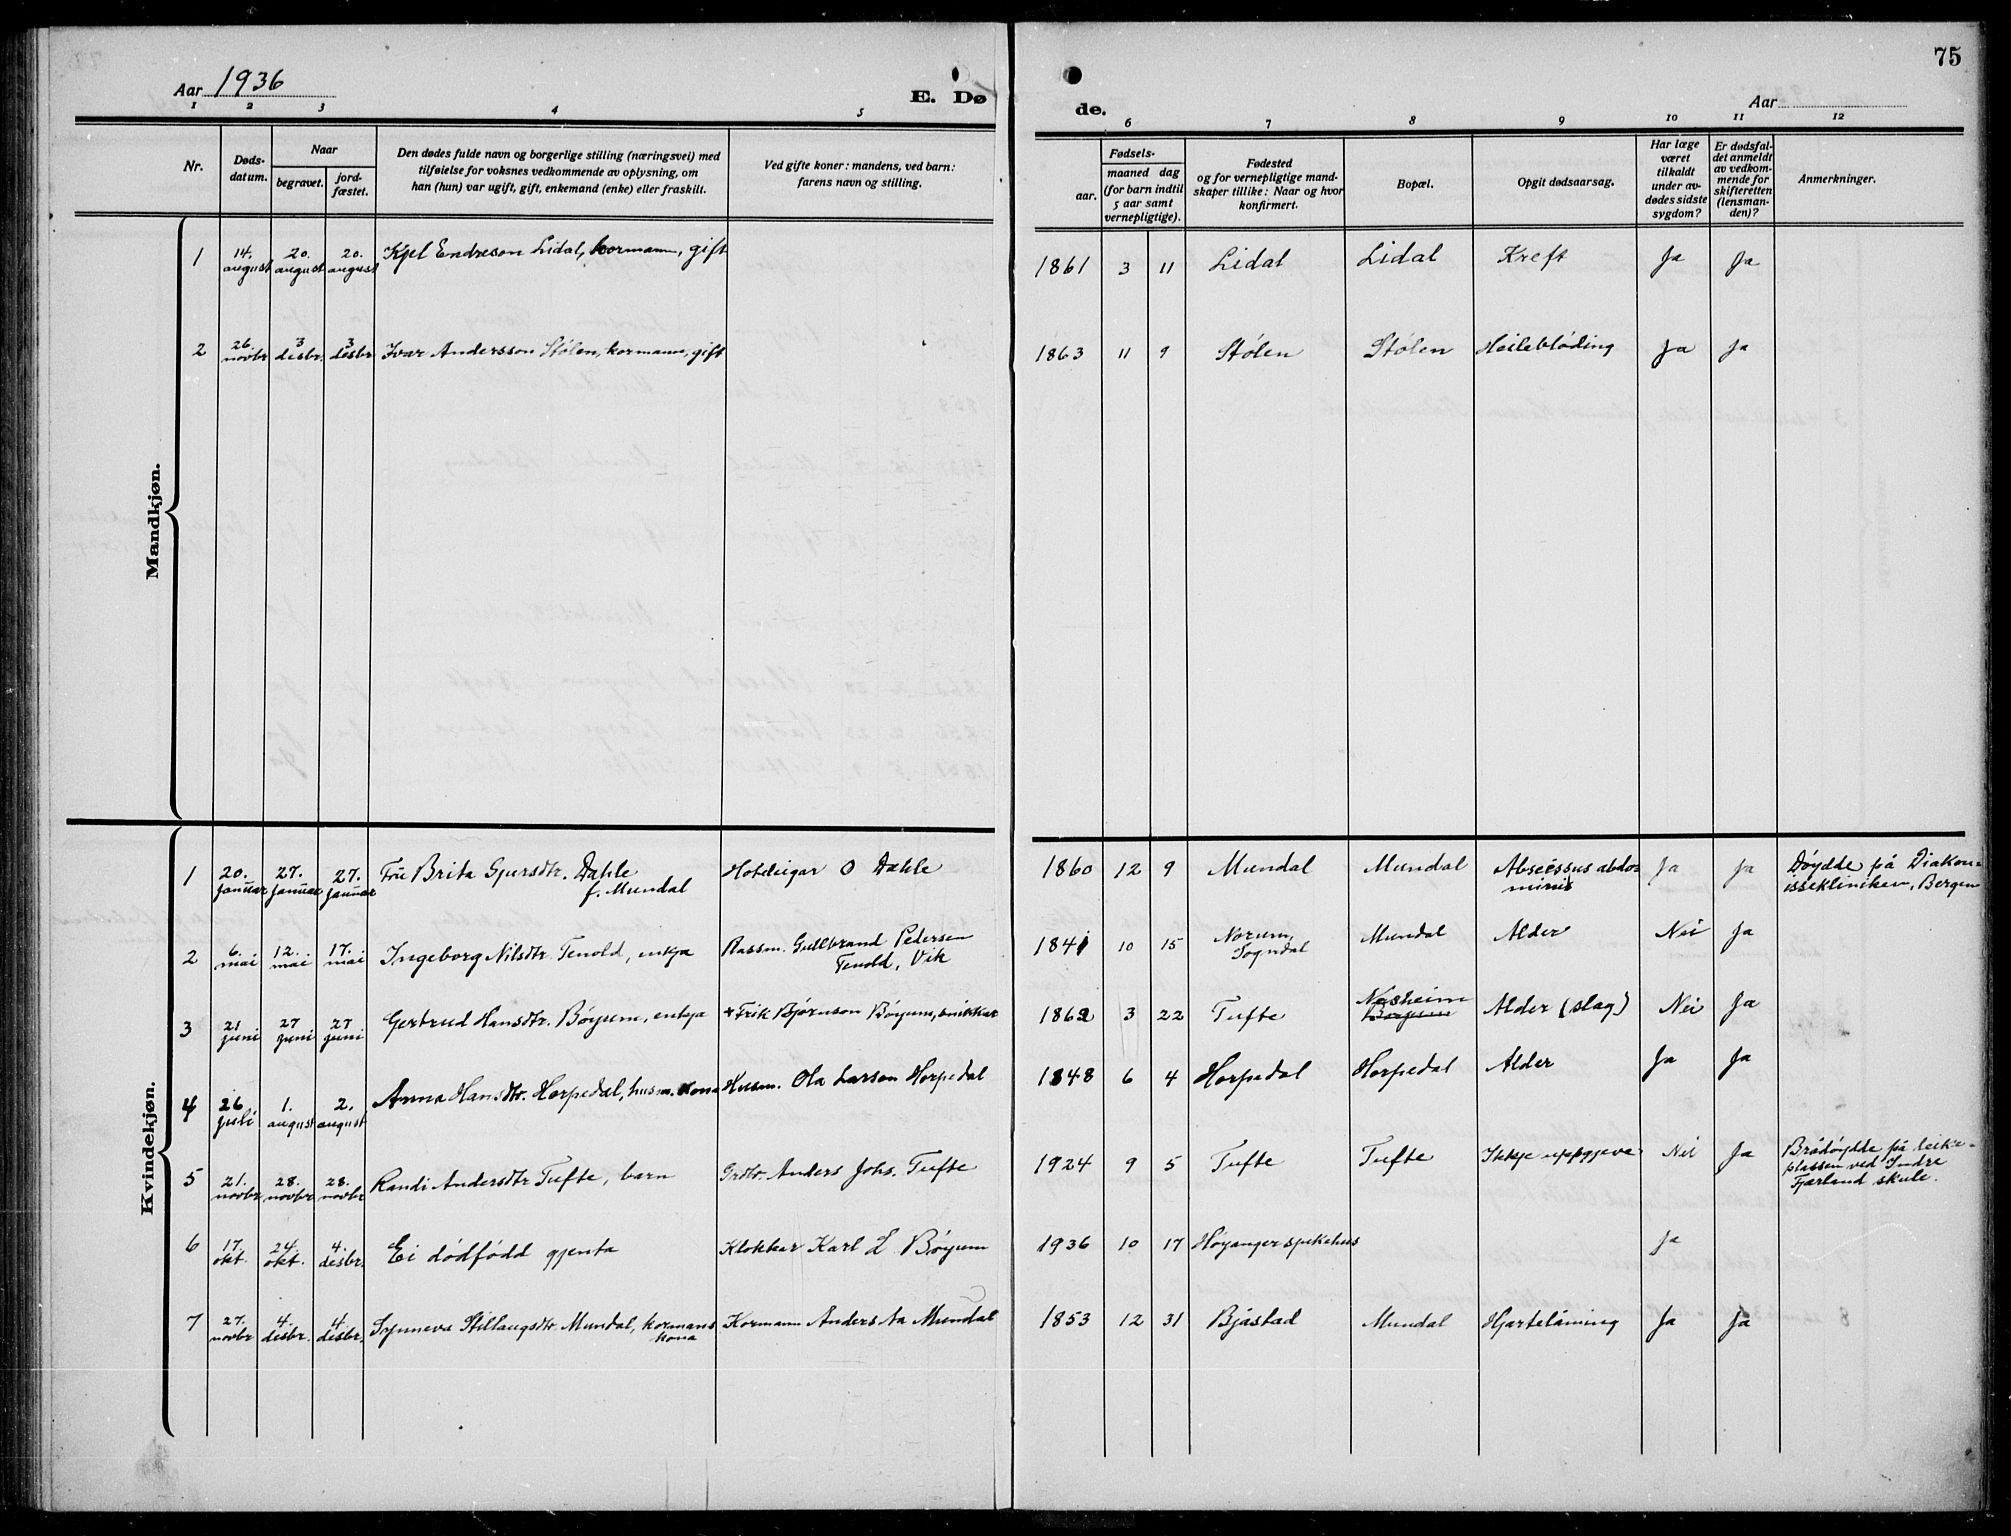 75
Aar 1936
E. Døde.
Aar
1 2 3 4 5 6 7 8 9 10 11 12
Nr.
Døds-datum.
Naar
begravet.
jord-fæstet.
Den dødes fulde navn og borgerlige stilling (næringsvei) med
tilføielse for voksnes vedkommende av oplysning, om
han (hun) var ugift, gift, enkemand (enke) eller fraskilt.
Ved gifte koner: mandens, ved barn:
farens navn og stilling.
Fødsels-
aar.
maaned dag
(for barn indtil
5 aar samt
vernepligtige).
Fødested
og for vernepligtige mand-
skaper tillike: Naar og hvor
konfirmert.
Bopæl.
Opgit dødsaarsag.
Har læge
været
tilkaldt
under av-
dødes sidste
sygdom?
Er dødsfal-
det anmeldt
av vedkom-
mende for
skifteretten
(lensman-
den)?
Anmerkninger.
Mandkjøn.
1 14. august 20. august 20. august Kjel Endreson Lidal, kormann, gift 1861 3 11 Lidal Lidal Kreft Ja Ja
2 26. novbr 3 desbr. 3 desbr Ivar Andersson Stølen, kormann, gift 1863 11 9 Stølen Stølen Heilebløding Ja Ja
Kvindekjøn.
1 20. januar 27. januar 27. januar Fru Brita Gjursdtr. Dahle Hoteleigar O Dahle 1860 12 9 Mundal Mundal Abscessus abdo- Ja Ja Døydde på Diakon-
f. Mundal minis issekliniken, Bergen
2 6. mai 12. mai 17. mai Ingeborg Nilsdtr. Tenold, enkja Plassm. Gulbrand Pedersen 1841 10 15 Norum, Mundal Alder Nei Ja
Tenold, Vik Sogndal
3 21 juni 27 juni 27 juni Gertrud Hansdtr. Bøyum, enkja + Frik Bjørnson Bøyum, snikkar 1862 3 22 Tufte Nesheim Alder (slag) Nei Ja
Bøyum
4 26 juli 1. august 2. august Anna Hansdtr. Horpedal, husm. kona Husm. Ola Larsen Horpedal 1848 6 4 Horpedal Horpedal Alder Ja Ja
5 21. novbr 28. novbr. 28. novbr Randi Andersdtr Tufte, barn Grdbr. Anders Johs. Tufte 1924 9 5 Tufte Tufte Ikkje uppgjeve Nei Ja Brådøydde på leike-
plassen ved Indre
Fjærland skule.
6 17. okt. 24. okt. 4. desbr. Ei dødfødd gjenta Klokkar Karl L Bøyum 1936 10 17 Høyanger sjukehus Ja
7 27. novbr 4. desbr. 4. desbr. Synneva Stillaugsdtr Mundal, kormans Kormann Anders Aa Mundal 1853 12 31 Bjåstad Mundal Hjartelåming Ja Ja
kona